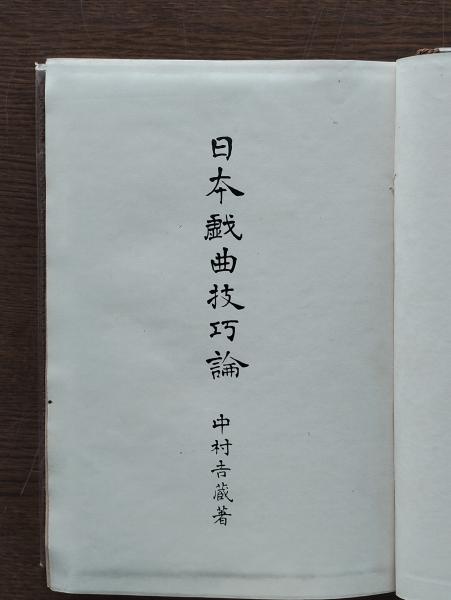 日本戯曲技巧論
中村吉蔵著